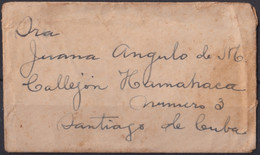 Sra
Juana Angulo de M
Callejón Hamahaca
número 3
Santiago de Cuba